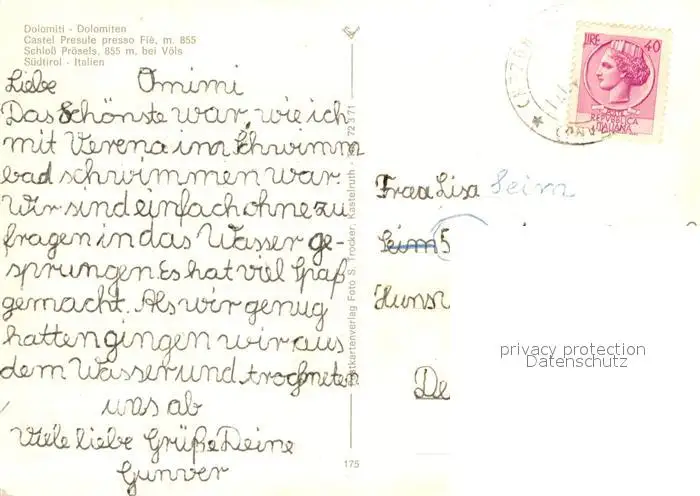 Dolomiti - Dolomiten
Castel Presule presso Fiè, m. 855
Schloß Prösels, 855 m, bei Völs
Südtirol - Italien
Liebe Omimi
Das Schönste war, wie ich
mit Verena im Schwimm
bad schwimmen war.
Wir sind einfach ohne zu
fragen in das Wasser ge-
sprungen. Es hat viel Spaß
gemacht. Als wir genug
hatten gingen wir aus
dem Wasser und trockneten
uns ab
Viele liebe Grüße Deine
Gunver
Postkartenverlag Foto S. Trocker, Kastelruth
72 371
175
LIRE 40
REPUBBLICA
ITALIANA
Frau Lisa Seim
Seim 5
De
privacy protection
Datenschutz